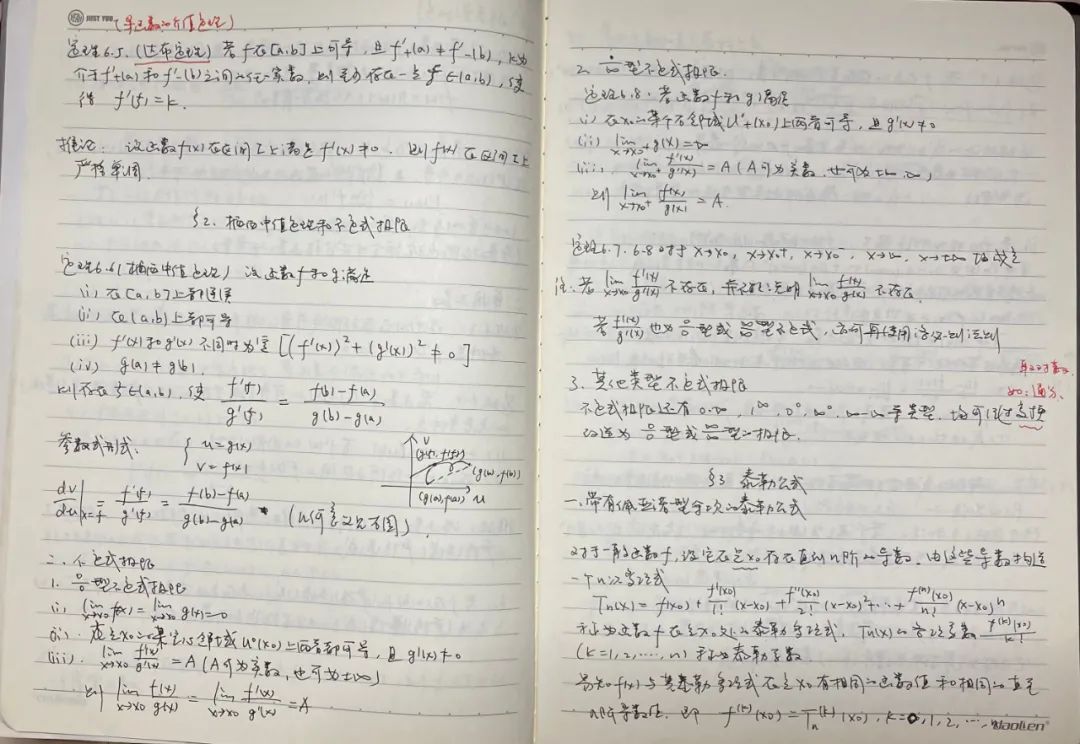 JUST YOU (导函数的介值定理)
定理6.5.(达布定理) 若f在[a,b]上可导,且f'+(a)≠f'-(b),k为
介于f'+(a)和f'-(b)之间的任一实数,则至少存在一点ξ∈(a,b),使
得 f'(ξ)=k.
推论. 设函数f(x)在区间I上满足f'(x)≠0.则f(x)在区间I上
严格单调.
§2. 柯西中值定理和不定式极限
定理6.6(柯西中值定理) 设函数f和g满足
(i) 在[a,b]上都连续
(ii) 在(a,b)上都可导
(iii) f'(x)和g'(x)不同时为零 [(f'(x))²+(g'(x))²≠0]
(iv) g(a)≠g(b).
则存在ξ∈(a,b),使 f'(ξ)/g'(ξ) = (f(b)-f(a))/(g(b)-g(a))
参数式形式. { u=g(x)
v=f(x)
v (g(ξ),f(ξ)) (g(b),f(b))
(g(a),f(a)) u
dv/du|x=ξ = f'(ξ)/g'(ξ) = (f(b)-f(a))/(g(b)-g(a)) (几何意义见右图).
二.不定式极限
1. 0/0型不定式极限
(i) lim x→x0 f(x)= lim x→x0 g(x)=0
(ii). 在点x0的某空心邻域U°(x0)上两者都可导,且g'(x)≠0
(iii). lim x→x0 f'(x)/g'(x) = A (A可为实数,也可为±∞)
则 lim x→x0 f(x)/g(x) = lim x→x0 f'(x)/g'(x) = A
2. ∞/∞型不定式极限.
定理6.8.若函数f和g满足
(i) 在x0的某个右邻域U°+(x0)上两者可导,且g'(x)≠0
(ii) lim x→x0+ g(x)=∞
(iii) lim x→x0+ f'(x)/g'(x) = A (A可为实数,也可为±∞,∞)
则 lim x→x0+ f(x)/g(x) = A.
定理6.7,6.8对于x→x0, x→x0+, x→x0-, x→∞, x→±∞均成立
注.若 lim x→x0 f'(x)/g'(x) 不存在,并不能说明 lim x→x0 f(x)/g(x) 不存在.
若 f'(x)/g'(x) 也为0/0型或∞/∞型不定式,亦可再使用洛必达法则
3. 其他类型不定式极限
取对数.
如:通分、
不定式极限还有0·∞, 1^∞, 0⁰, ∞⁰, ∞-∞等类型.均可经过变换
改造为0/0型或∞/∞型的极限.
§3 泰勒公式
一.带有佩亚诺型余项的泰勒公式
对于一般函数f,设它在点x0存在直到n阶的导数.由这些导数构造
一个n次多项式
Tn(x) = f(x0) + f'(x0)/1! (x-x0) + f''(x0)/2! (x-x0)² + ··· + f⁽ⁿ⁾(x0)/n! (x-x0)ⁿ
称为函数f在点x0处的泰勒多项式,Tn(x)的各项系数 f⁽ᵏ⁾(x0)/k!
(k=1,2,···,n)称为泰勒系数.
易知f(x)与其泰勒多项式在点x0有相同的函数值和相同的直至
n阶导数值.即 f⁽ᵏ⁾(x0)=Tn⁽ᵏ⁾(x0), k=0,1,2,···,